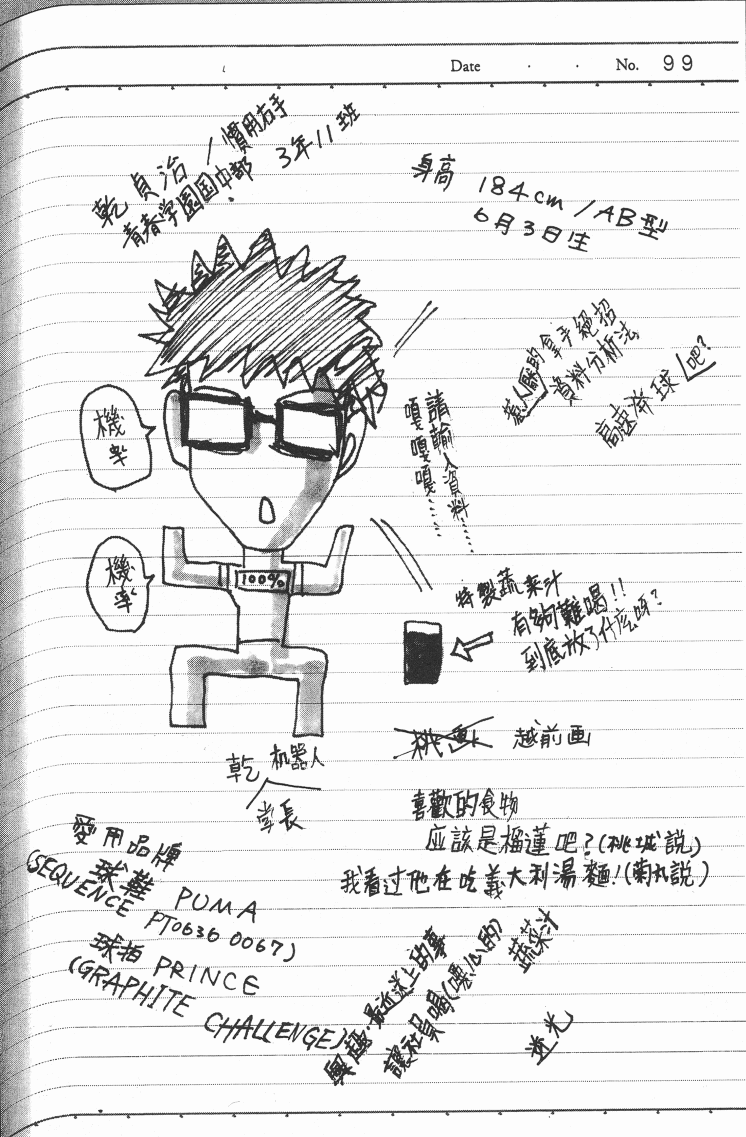 Date · · No. 99
乾 貞治 / 慣用右手
青春学園国中部 3年11班
身高 184cm / AB型
6月3日生
惹人厭的拿手絕招
資料分析法
高速发球 吧?
請輸入資料……
嘎嘎嘎……
機率
機率
100%
特製蔬菜汁
有夠難喝!!
到底放了什么呀?
桃画 越前画
乾 机器人
堂長
喜歡的食物
应該是榴蓮吧?(桃城說)
我看过他在吃義大利湯麵!(菊丸說)
愛用品牌
球鞋 PUMA
(SEQUENCE PT0636 0067)
球拍 PRINCE
(GRAPHITE CHALLENGE)
興趣·最近迷上的事
讓社員喝(噁心的)
蔬菜汁
逆光